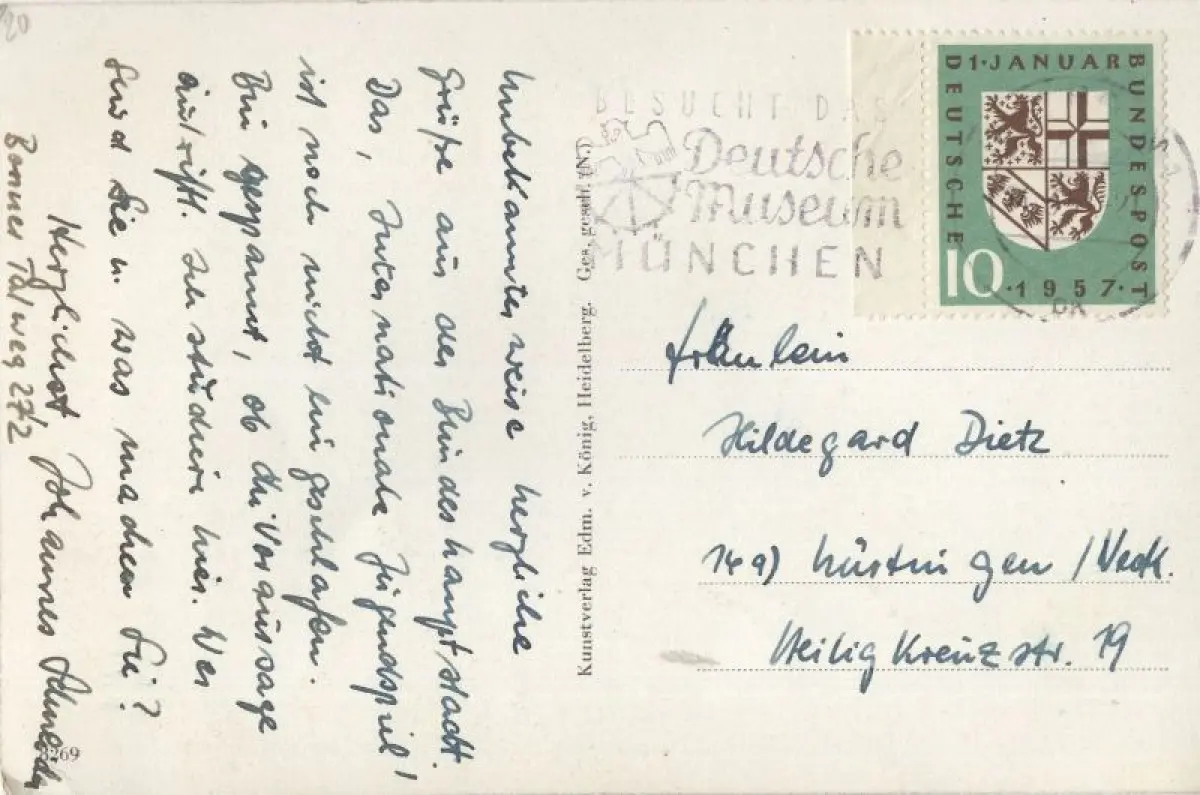 20
Unbekannterweise herzliche
Grüße aus der Bundeshauptstadt.
Das "Internationale Jugendspiel"
ist noch nicht eingeschlafen.
Bin gespannt, ob die Voraussage
zutrifft. Ich studiere hier. Wer
sind Sie u. was machen Sie?
Herzlichst Johannes
Bonner Talweg 27/2
8269
Kunstverlag Edm. v. König, Heidelberg. Ges. gesch. (N.)
BESUCHT DAS
Deutsche
Museum
MÜNCHEN
1·JANUAR
DEUTSCHE
BUNDESPOST
10
·1957·
Fräulein
Hildegard Dietz
14a) Nürtingen /Neck.
Heiligkreuzstr. 19